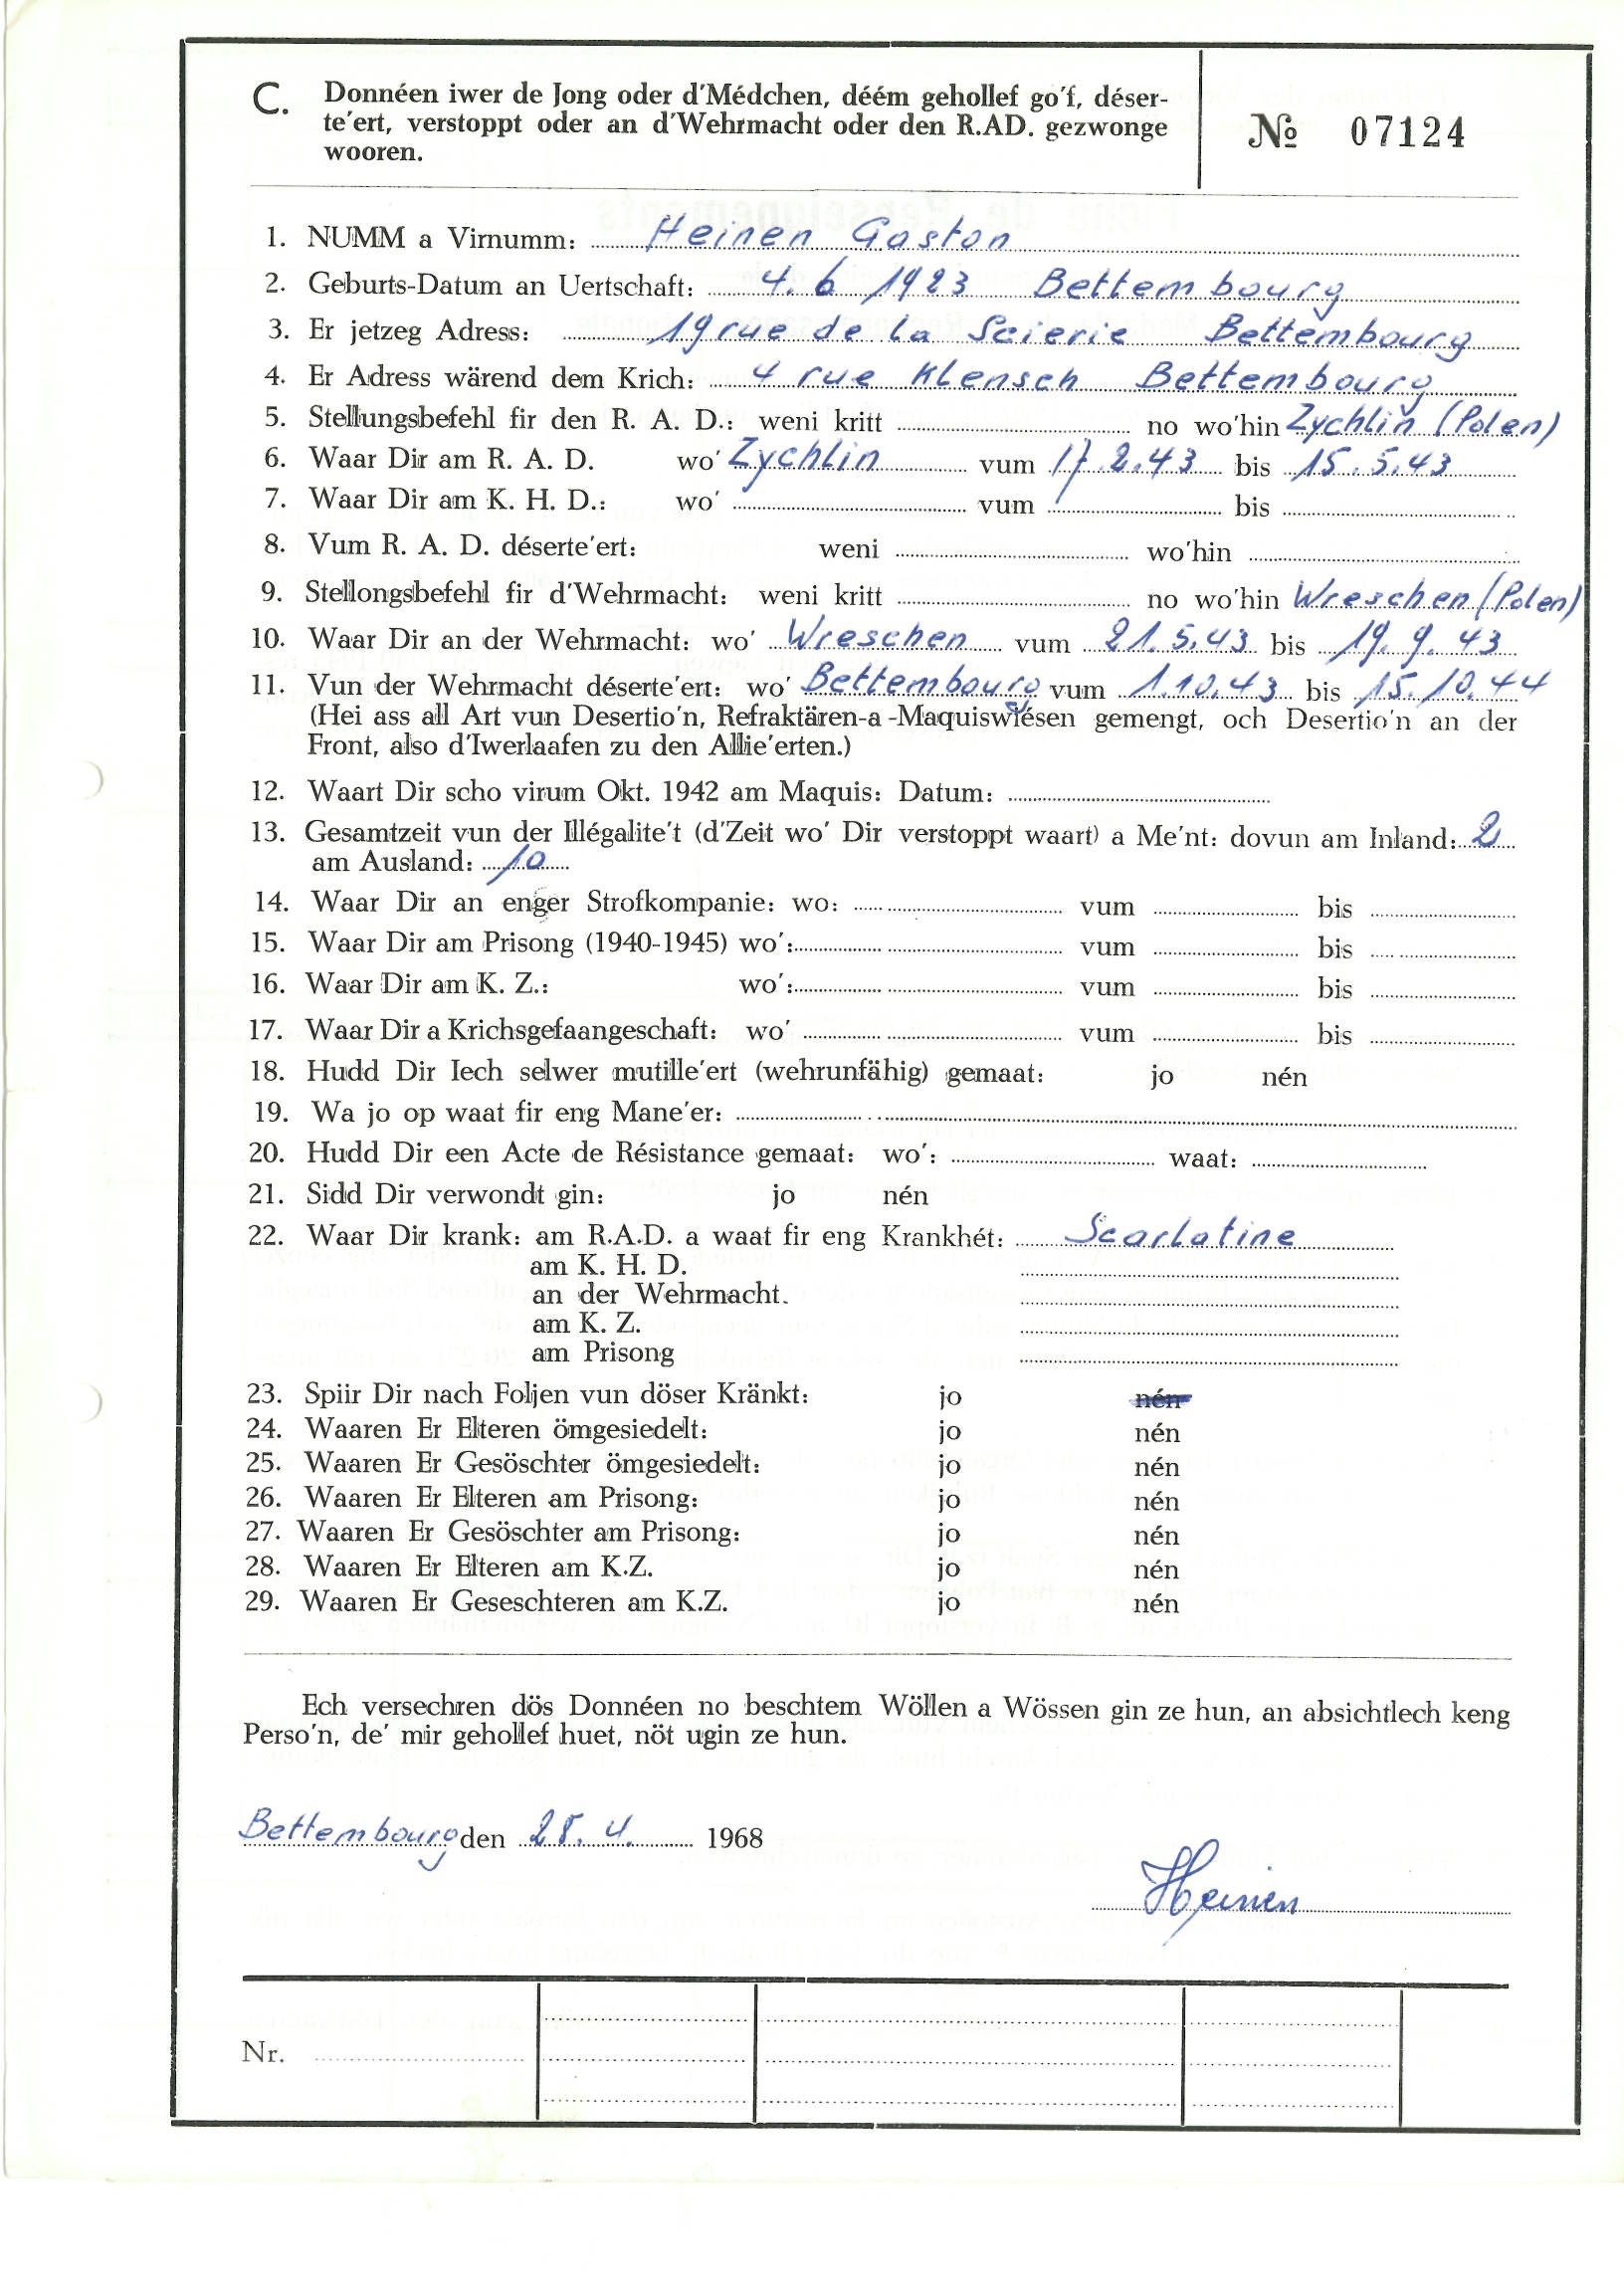 C. Donnéen iwer de Jong oder d'Médchen, déém gehollef go'f, déser-
te'ert, verstoppt oder an d'Wehrmacht oder den R.AD. gezwonge
wooren.
№ 07124
1. NUMM a Virnumm: Heinen Gaston
2. Geburts-Datum an Uertschaft: 4.6 1923 Bettembourg
3. Er jetzeg Adress: 19 rue de la Scierie Bettembourg
4. Er Adress wärend dem Krich: 4 rue Klensch Bettembourg
5. Stellungsbefehl fir den R. A. D.: weni kritt no wo'hin Zychlin (Polen)
6. Waar Dir am R. A. D. wo' Zychlin vum 17.2.43 bis 15.5.43
7. Waar Dir am K. H. D.: wo' vum bis
8. Vum R. A. D. déserte'ert: weni wo'hin
9. Stellongsbefehl fir d'Wehrmacht: weni kritt no wo'hin Wreschen (Polen)
10. Waar Dir an der Wehrmacht: wo' Wreschen vum 21.5.43 bis 19.9.43
11. Vun der Wehrmacht déserte'ert: wo' Bettembourg vum 1.10.43 bis 15.10.44
(Hei ass all Art vun Desertio'n, Refraktären-a-Maquiswiesen gemengt, och Desertio'n an der
Front, also d'Iwerlaafen zu den Allie'erten.)
12. Waart Dir scho virum Okt. 1942 am Maquis: Datum:
13. Gesamtzeit vun der Illégalite't (d'Zeit wo' Dir verstoppt waart) a Me'nt: dovun am Inland: 2
am Ausland: 10
14. Waar Dir an enger Strofkompanie: wo: vum bis
15. Waar Dir am Prisong (1940-1945) wo': vum bis
16. Waar Dir am K. Z.: wo': vum bis
17. Waar Dir a Krichsgefaangeschaft: wo' vum bis
18. Hudd Dir Iech selwer mutille'ert (wehrunfähig) gemaat: jo nén
19. Wa jo op waat fir eng Mane'er:
20. Hudd Dir een Acte de Résistance gemaat: wo': waat:
21. Sidd Dir verwondt gin: jo nén
22. Waar Dir krank: am R.A.D. a waat fir eng Krankhét: Scarlatine
am K. H. D.
an der Wehrmacht.
am K. Z.
am Prisong
23. Spiir Dir nach Foljen vun döser Kränkt: jo nén
24. Waaren Er Elteren ömgesiedelt: jo nén
25. Waaren Er Gesöschter ömgesiedelt: jo nén
26. Waaren Er Elteren am Prisong: jo nén
27. Waaren Er Gesöschter am Prisong: jo nén
28. Waaren Er Elteren am K.Z. jo nén
29. Waaren Er Geseschteren am K.Z. jo nén
Ech versechren dös Donnéen no beschtem Wöllen a Wössen gin ze hun, an absichtlech keng
Perso'n, de' mir gehollef huet, nöt ugin ze hun.
Bettembourg den 28.4. 1968
Heinen
Nr.